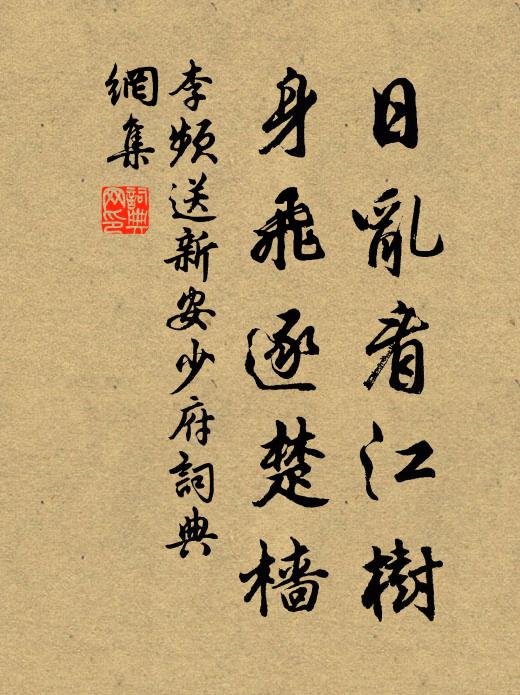 日亂看江樹
身飛逐楚檣
李頻送新安少府詞典
網集
詞典
网印